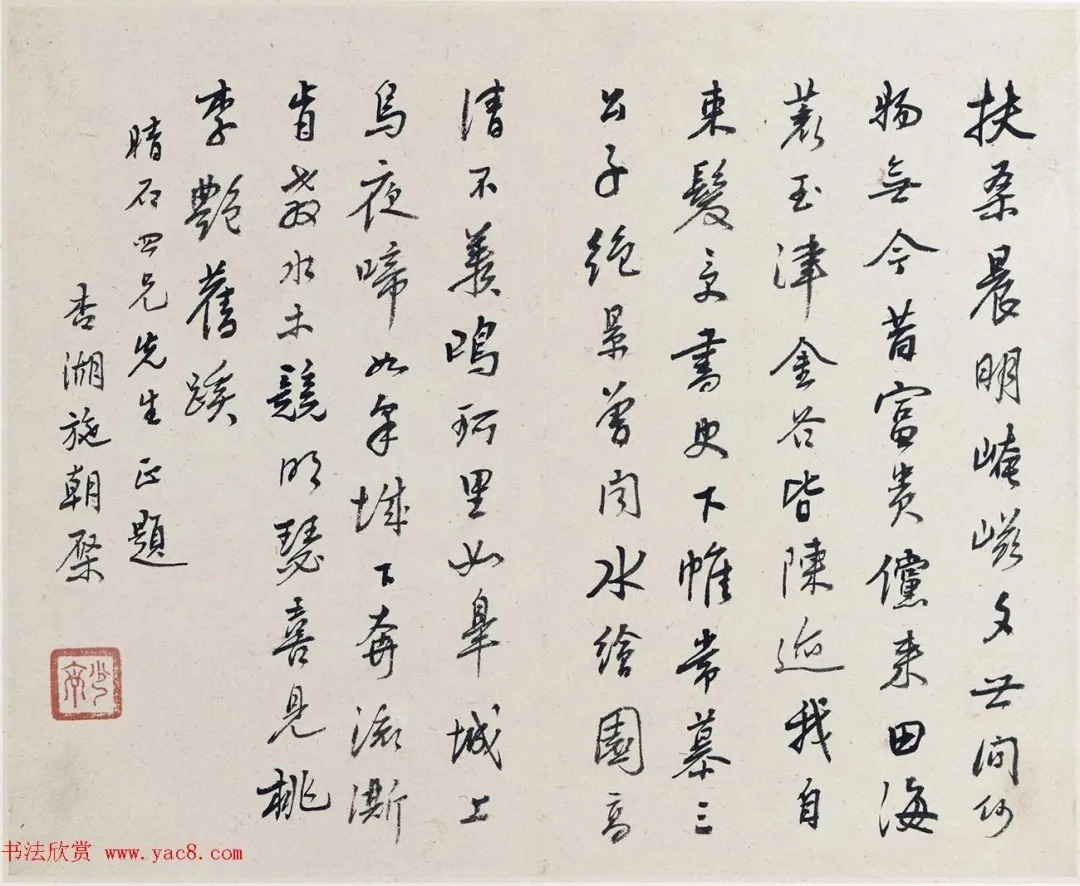 扶桑晨明崦嵫夕世間何
物無今昔富貴儻来田海
裏玉津金谷皆陳迹我自
束髮烹書史下帷常慕三
公子絶景曾聞水繪園高
清不羡鳴珂里如皋城上
烏夜啼如皋城下奔流澌
肯教水木競明瑟喜見桃
李艷舊蹊
晴石四兄先生正題
杏湖施朝棨
书法欣赏 www.yac8.com